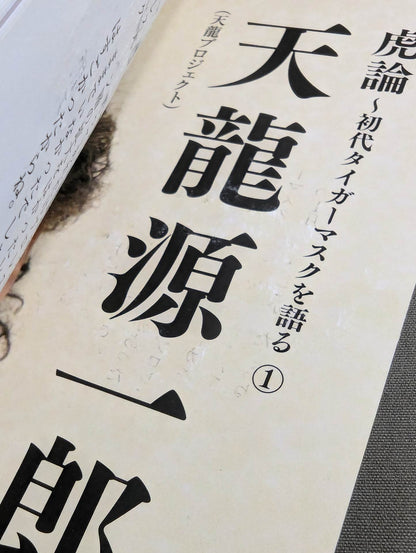 虎論〜初代タイガーマスクを語る①
天龍源一郎
(天龍プロジェクト)